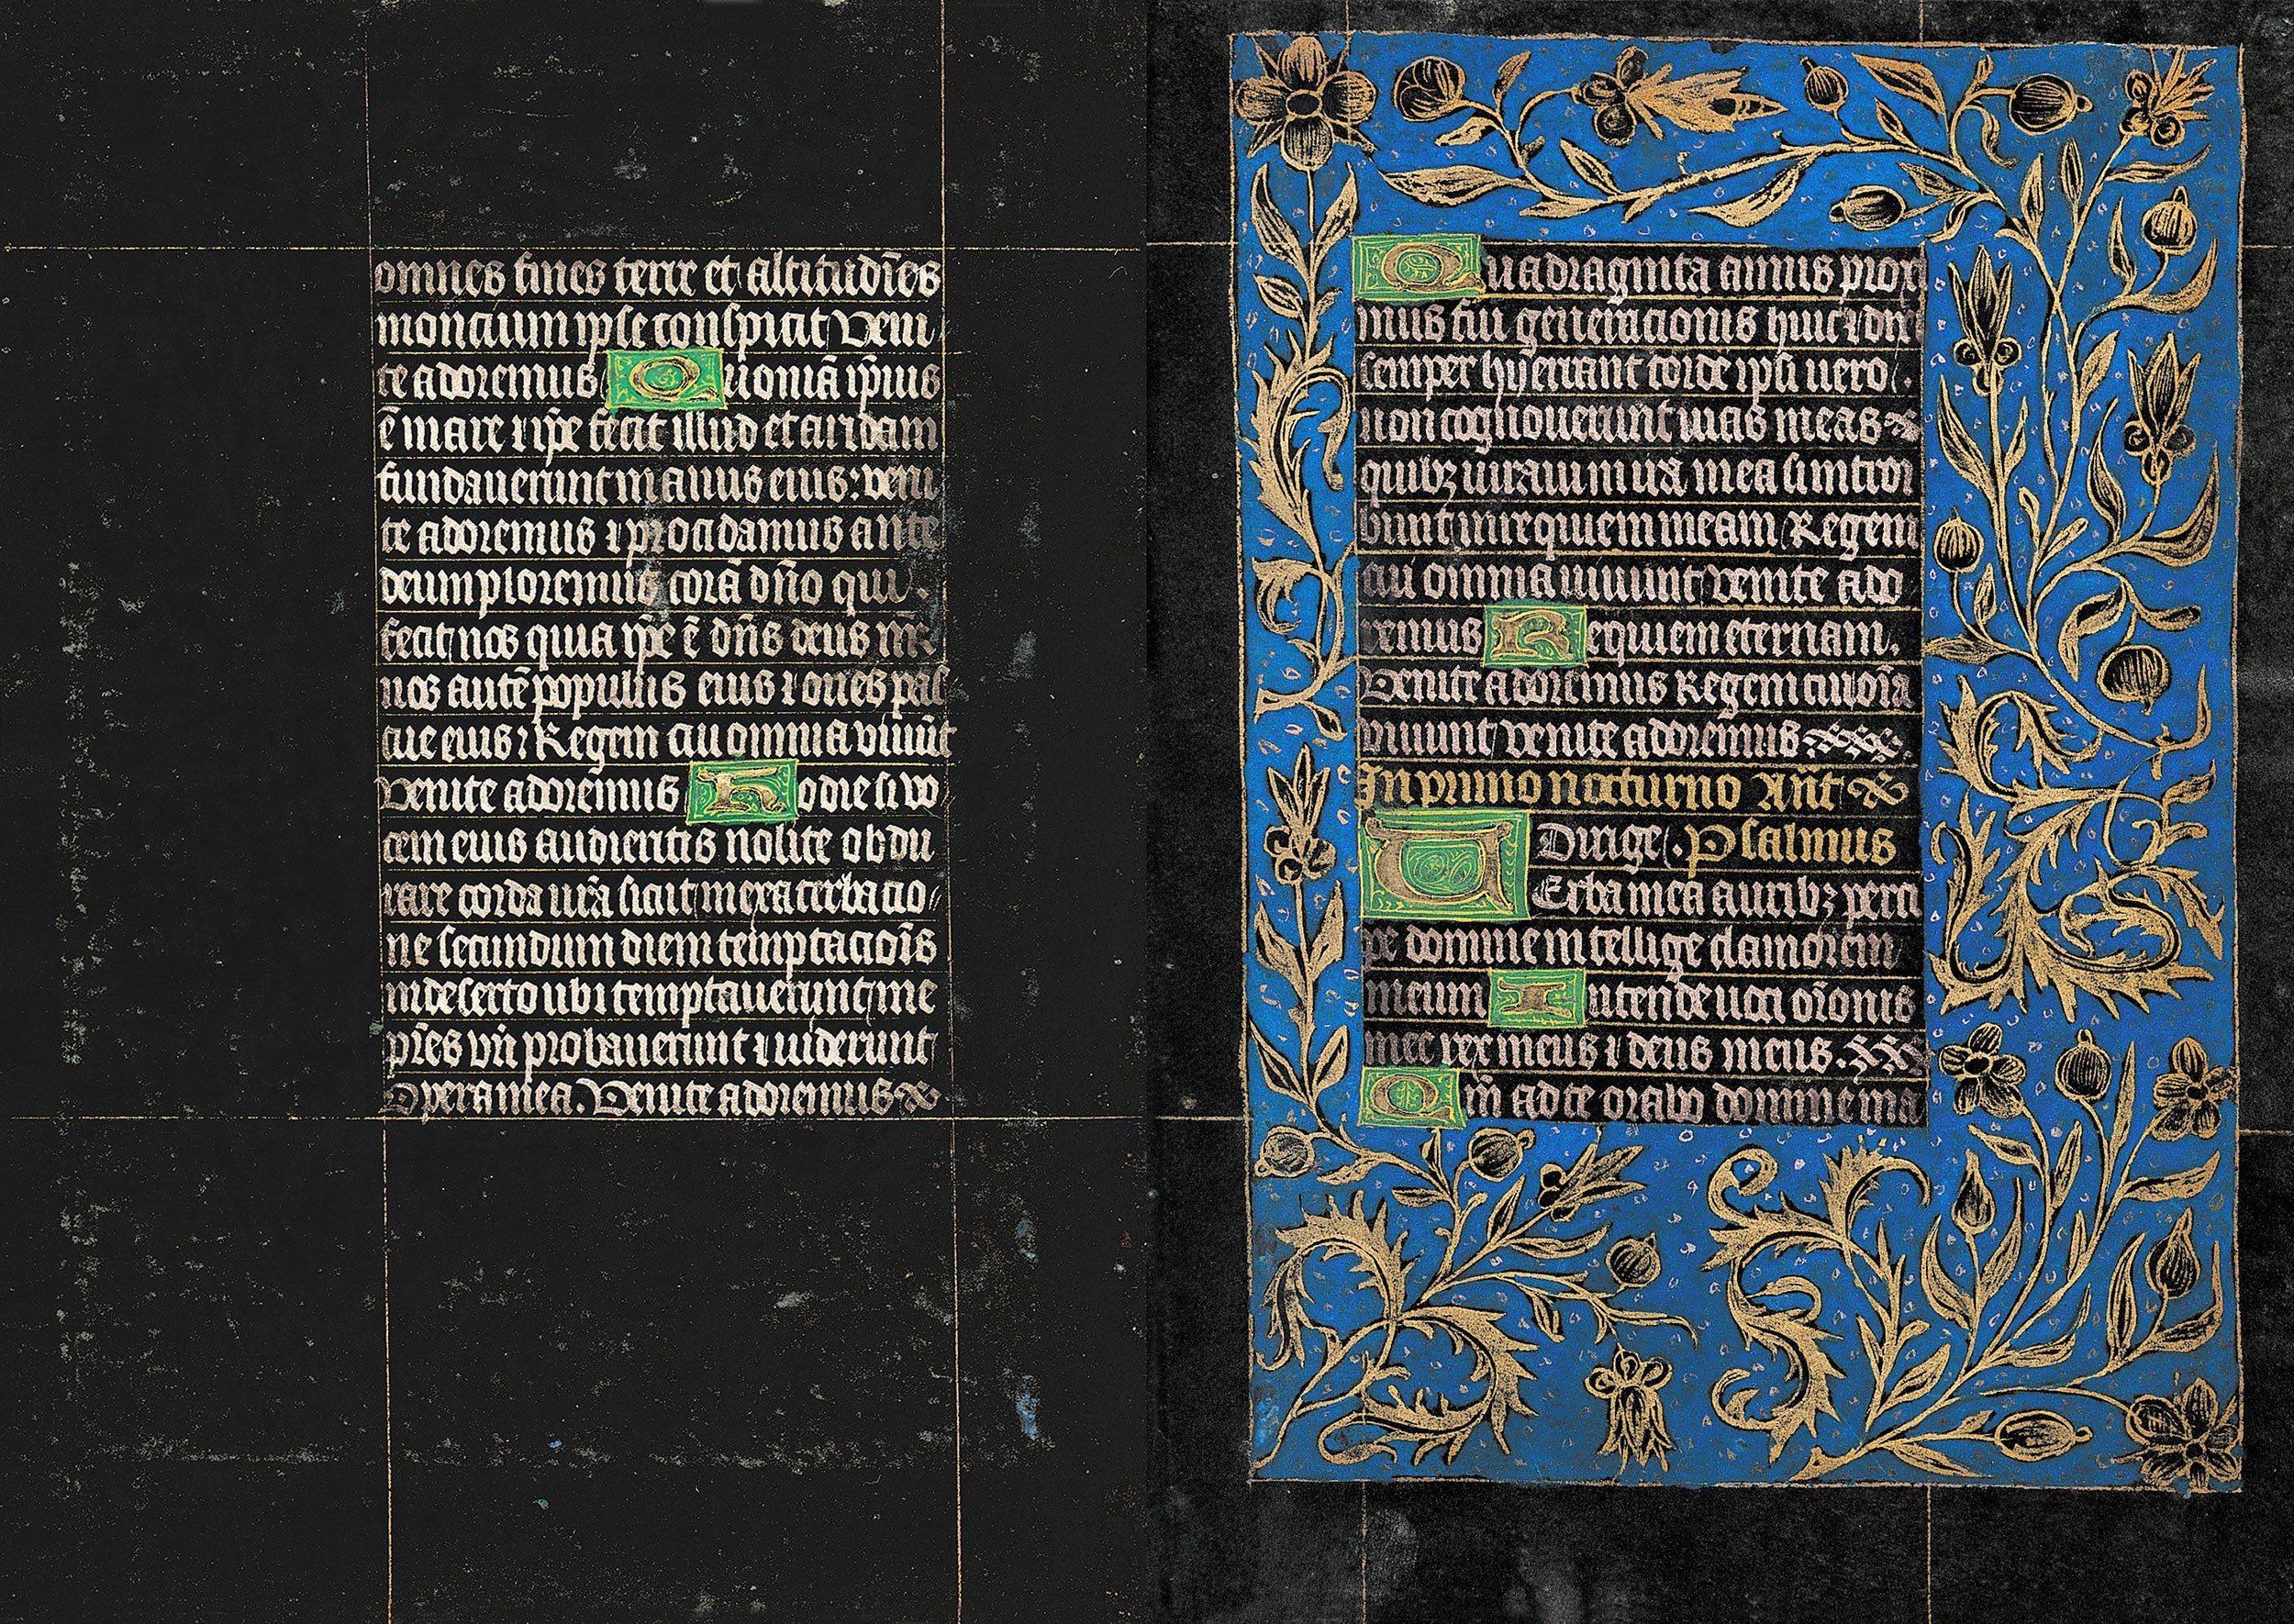 omnes fines terre et altitudīes
moncium ipse conspicit Veni
te adoremus Qnoniā ip̄ius
ē mare ⁊ ip̄e fecit illud et aridam
fundaverunt manus eius: veni
te adoremus ⁊ procidamus ante
deum ploremus corā dn̄o qui.
fecit nos quia ip̄e ē dn̄s deus nr̄
nos autē populus eius ⁊ oues pas
cue eius: Regem cui omnia viuūt
Venite adoremus Hodie si vo
cem eius audieritis nolite obdu
rare corda vr̄a sicut in exacerbacio
ne secundum diem temptacioīs
in deserto ubi temptauerunt me
pr̄es vr̄i probauerunt ⁊ uiderunt
Opera mea. Venite adoremus
Quadraginta annis proxi
mus fui generacionis huic ⁊ dixi
semper hij errant corde ipsi uero.
non cognouerunt uias meas
quibꝫ iuraui in ira mea si introi
bunt in requiem meam Regem
cui omnia uiuunt venite ado
remus Requiem eternam.
Venite adoremus Regem cui oīa
viuunt venite adoremus
In primo nocturno An̄t
Dirige. Psalmus
VErba mea auribꝫ perci
pe domine intellige clamorem
meum Intende uoci or̄onis
mee rex meus ⁊ deus meus.
Qm̄ ad te orabo domine ma